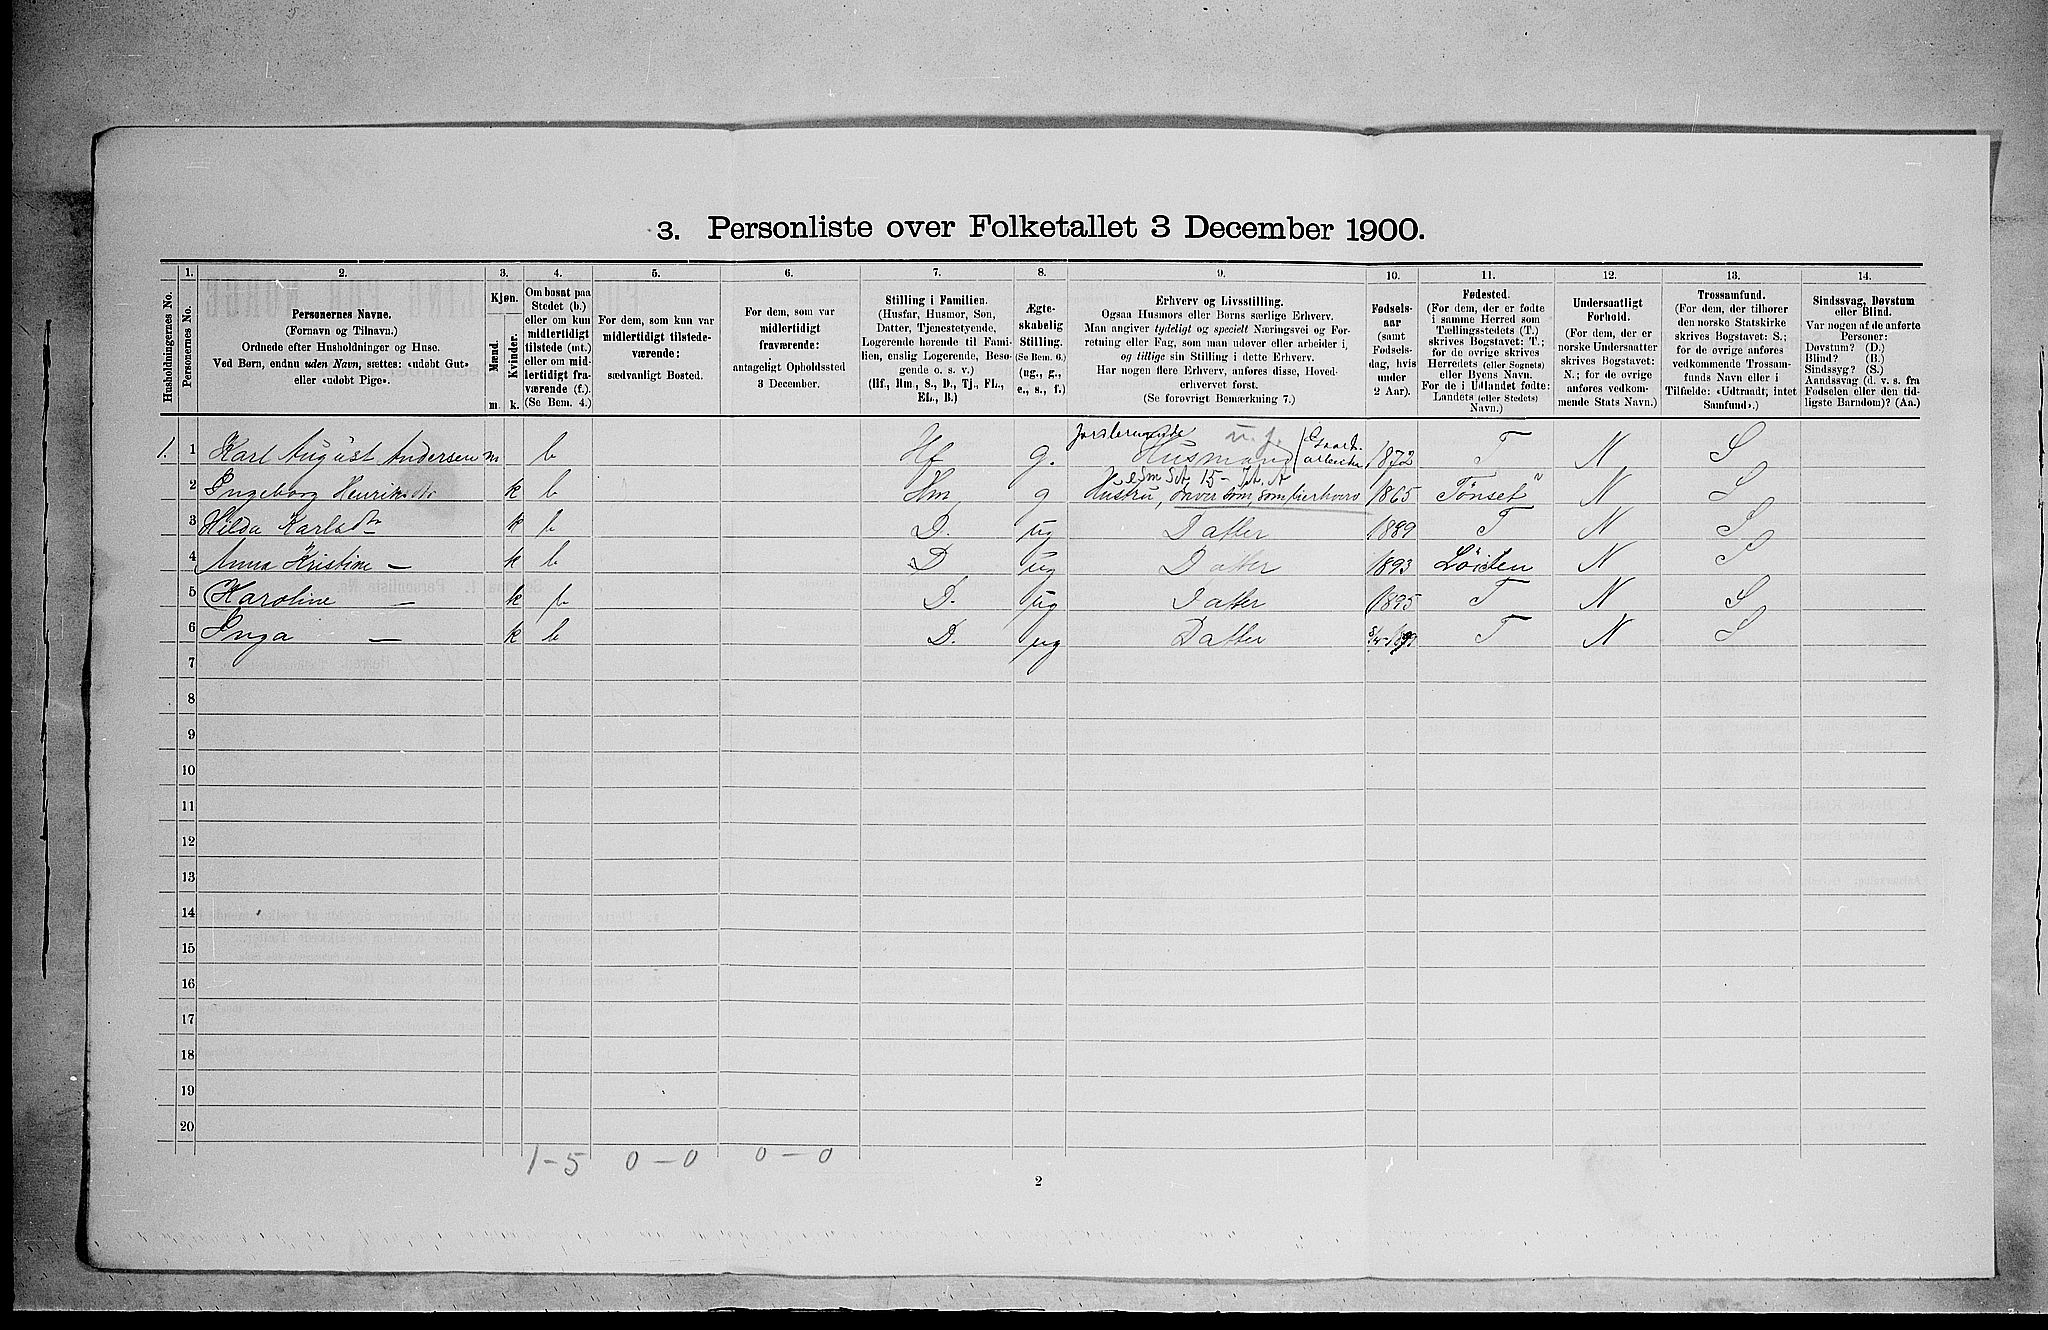 3. Personliste over Folketallet 3 December 1900.
Husholdningernes No.
1.
Personernes No.
2.
Personernes Navne.
(Fornavn og Tilnavn.)
Ordnede efter Husholdninger og Huse.
Ved Børn, endnu uden Navn, sættes: «udøbt Gut»
eller «udøbt Pige».
3.
Kjøn.
Mænd.
Kvinder.
m. k.
4.
Om bosat paa
Stedet (b.)
eller om kun
midlertidigt
tilstede (mt.)
eller om mid-
lertidigt fra-
værende (f.).
(Se Bem. 4.)
5.
For dem, som kun var
midlertidigt tilstede-
værende:
sædvanligt Bosted.
6.
For dem, som var
midlertidigt
fraværende:
antageligt Opholdssted
3 December.
7.
Stilling i Familien.
(Husfar, Husmor, Søn,
Datter, Tjenestetyende,
Logerende hørende til Fami-
lien, enslig Logerende, Besø-
gende o. s. v.)
(Hf., Hm., S., D., Tj., FL.,
EL., B.)
8.
Ægte-
skabelig
Stilling.
(Se Bem. 6.)
(ug., g.,
e., s., f.)
9.
Erhverv og Livsstilling.
Ogsaa Husmors eller Børns særlige Erhverv.
Man angiver tydeligt og specielt Næringsvei og For-
retning eller Fag, som man udøver eller arbeider i,
og tillige sin Stilling i dette Erhverv.
Har nogen flere Erhverv, anføres disse, Hoved-
erhvervet først.
(Se forøvrigt Bemærkning 7.)
10.
Fødsels-
aar
(samt
Fødsels-
dag, hvis
under
2 Aar).
11.
Fødested.
(For dem, der er fødte
i samme Herred som
Tællingsstedets (T.)
skrives Bogstavet: T.;
for de øvrige skrives
Herredets (eller Sognets)
eller Byens Navn.
For de i Udlandet fødte:
Landets (eller Stedets)
Navn.)
12.
Undersaatligt
Forhold.
(For dem, der er
norske Undersaatter
skrives Bogstavet:
N.; for de øvrige
anføres vedkom-
mende Stats Navn.)
13.
Trossamfund.
(For dem, der tilhører
den norske Statskirke
skrives Bogstavet: S.;
for de øvrige anføres
vedkommende Trossam-
funds Navn eller i
Tilfælde: «Udtraadt, intet
Samfund».)
14.
Sindssvag, Døvstum
eller Blind.
Var nogen af de anførte
Personer:
Døvstum? (D.)
Blind? (B.)
Sindssyg? (S.)
Aandssvag (d. v. s. fra
Fødselen eller den tid-
ligste Barndom)? (Aa.)
1. 1 Karl August Andersen m b Hf g. Husmand u. j. Gaards-arbeider 1872 T N S
2 Ingeborg Henriksdtr k b Hm g Hustru 1865 Tønset N S
3 Hilda Karlsdtr k b D. ug Datter 1889 T N S
4 Anna Kristine — k b D ug Datter 1893 Løiten N S
5 Karoline — k b D. ug Datter 1895 T N S
6 Inga — k b D. ug Datter T N S
7
8
9
10
11
12
13
14
15
16
17
18
19
20
1–5 0–0 0–0
2